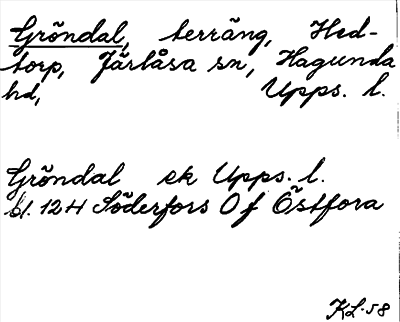 Gröndal, terräng, Hed-
torp, Järlåsa sn, Hagunda
hd, Upps. l.
Gröndal ek Upps. l.
bl. 12H Söderfors Of Östfora
KL-58